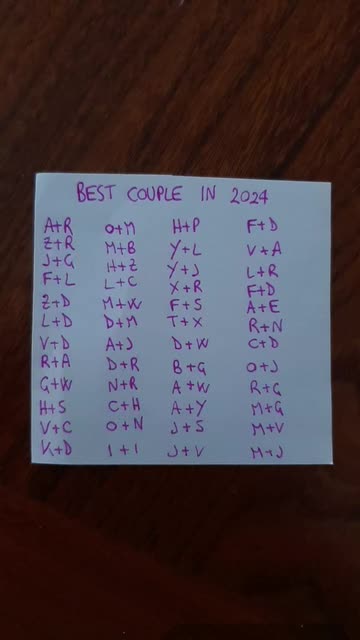 BEST COUPLE IN 2024
A+R O+M H+P F+D
Z+R M+B Y+L V+A
J+G H+Z Y+J L+R
F+L L+C X+R F+D
Z+D M+W F+S A+E
L+D D+M T+X R+N
V+D A+J D+W C+D
R+A D+R B+G O+J
G+W N+R A+W R+G
H+S C+H A+Y M+G
V+C O+N J+S M+V
K+D I+I J+V M+J